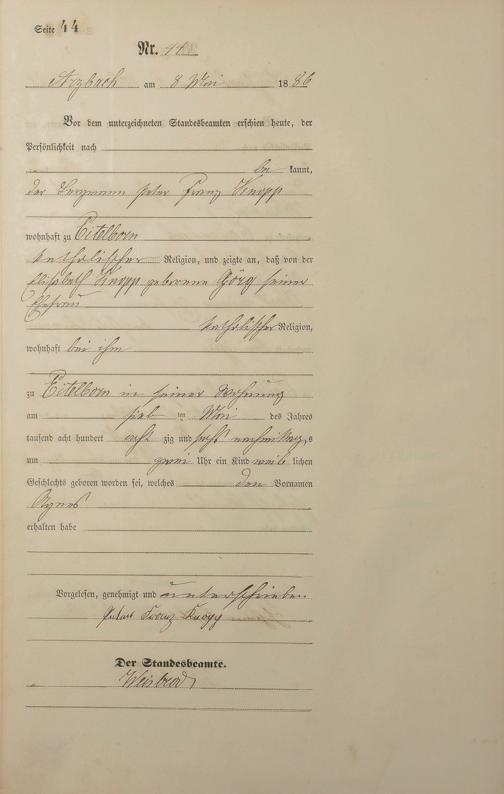 Seite 44
Nr. 44
Arzbach am 8 Mai 1886
Vor dem unterzeichneten Standesbeamten erschien heute, der
Persönlichkeit nach
be kannt,
der Bergmann Peter Franz Knopp
wohnhaft zu Eitelborn
katholischer Religion, und zeigte an, daß von der
Elisabeth Knopp geborene Görg seiner
Ehefrau
katholischer Religion,
wohnhaft bei ihm
zu Eitelborn in seiner Wohnung
am ten Mai des Jahres
tausend acht hundert acht zig und sechs nachmittags
um zwei Uhr ein Kind weib lichen
Geschlechts geboren worden sei, welches den Vornamen
Agnes
erhalten habe
Vorgelesen, genehmigt und unterschrieben
Peter Franz Knopp
Der Standesbeamte.
Weisbrod